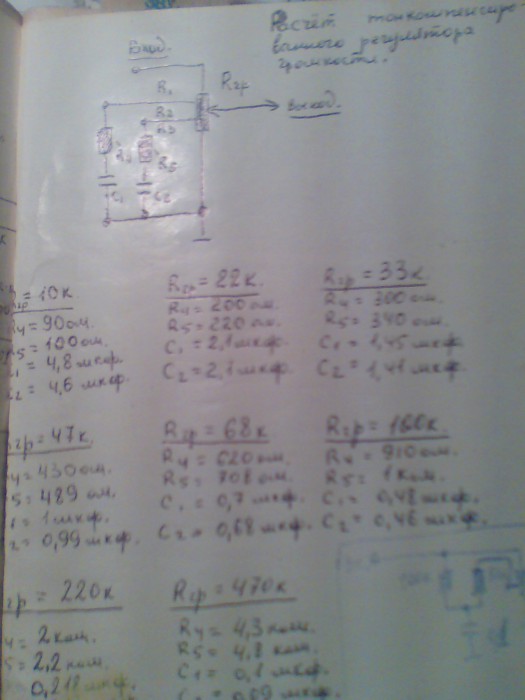 Расчёт тонкомпенсиро-
ванного регулятора
громкости.
Вход.
R1
Rгр
R2
R3
Выход.
R4
R5
C1
C2
Rгр = 10к
R4 = 90 ом.
R5 = 100 ом.
C1 = 4,8 мкф.
C2 = 4,6 мкф.
Rгр = 22к
R4 = 200 ом.
R5 = 220 ом.
C1 = 2,1 мкф.
C2 = 2,1 мкф.
Rгр = 33к
R4 = 300 ом.
R5 = 340 ом.
C1 = 1,45 мкф
C2 = 1,41 мкф.
Rгр = 47к.
R4 = 430 ом.
R5 = 489 ом.
C1 = 1 мкф.
C2 = 0,99 мкф.
Rгр = 68к
R4 = 620 ом.
R5 = 708 ом.
C1 = 0,7 мкф.
C2 = 0,68 мкф.
Rгр = 100к
R4 = 910 ом.
R5 = 1 ком.
C1 = 0,48 мкф.
C2 = 0,46 мкф.
Rгр = 220к
R4 = 2 ком.
R5 = 2,2 ком.
0,218 мкф.
Rгр = 470к
R4 = 4,3 ком.
R5 = 4,8 ком.
C1 = 0,1 мкф.